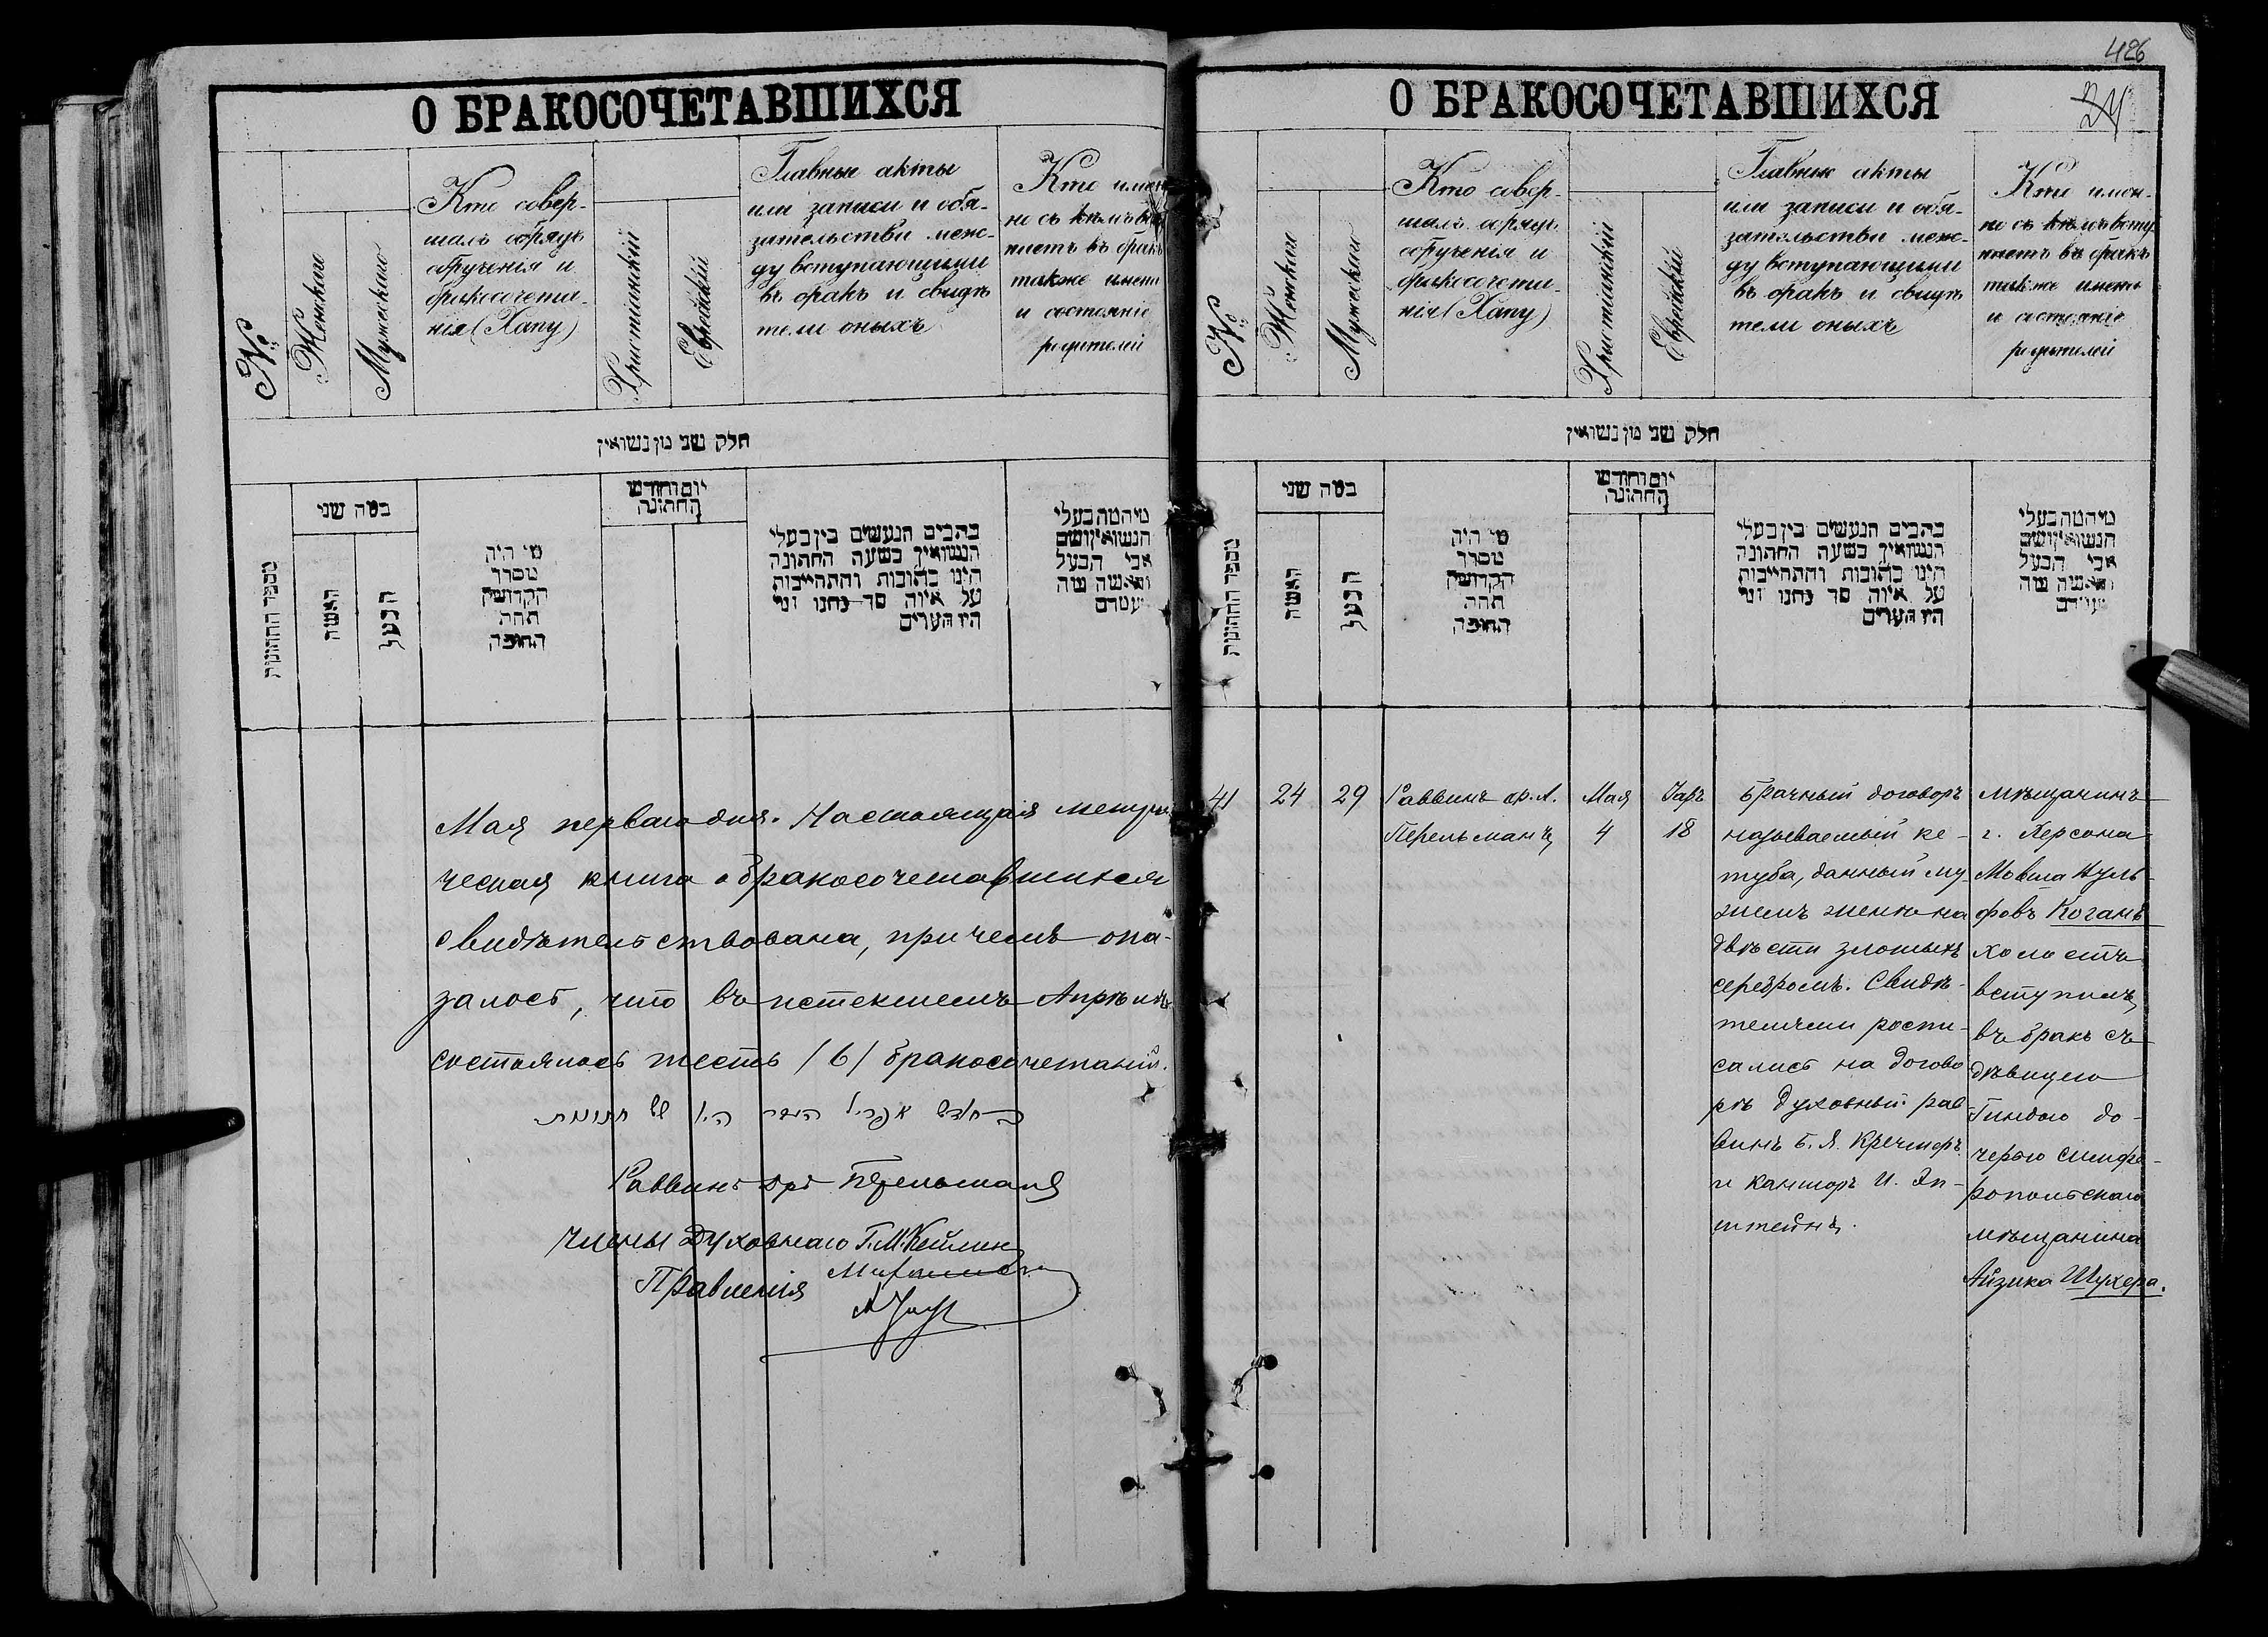 О БРАКОСОЧЕТАВШИХСЯ
№
Женскаго
Мужескаго
Кто совер-
шалъ обрядъ
обрученія и
бракосочета-
нія (Хапу)
Христіанскій
Еврейскій
Главные акты
или записи и обя-
зательства меж-
ду вступающими
въ бракъ и свидѣ
тели оныхъ
Кто имен
но съ кѣмъ вст
паетъ въ бракъ
также имена
и состояніе
родителей
חלק שני מן נשואין
מספר החתונות
במה שני
האשה
הבעל
מי היה
מסדר
הקדושין
תחת
החופה
יום וחודש
החתונה
כתבים הנעשים בין בעלי
הנשואין בשעה החתונה
הינו כתובות והתחייבות
על איזה סך נתנו ומי
היו העדים
מיהמה בעלי
הנשואין ושם
אבי הבעל
והאשה ומה
מעמדם
Мая перваго дня. Настоящая метри
ческая книга о бракосочетавшихся
свидѣтельствована, при чемъ ока-
залось, что въ истекшемъ Апрѣлѣ
состоялось шесть /6/ бракосочетаній.
Раввинъ дръ Перельманъ
Члены Духовнаго Г. М. Кейлин
Правленія
426
24
О БРАКОСОЧЕТАВШИХСЯ
№
Женскаго
Мужескаго
Кто совер-
шалъ обрядъ
обрученія и
бракосочета-
нія (Хапу)
Христіанскій
Еврейскій
Главные акты
или записи и обя-
зательства меж-
ду вступающими
въ бракъ и свидѣ
тели оныхъ
Кто имен-
но съ кѣмъ всту
паетъ въ бракъ
также имена
и состояніе
родителей
חלק שני מן נשואין
מספר החתונות
במה שני
האשה
הבעל
מי היה
מסדר
הקדושין
תחת
החופה
יום וחודש
החתונה
כתבים הנעשים בין בעלי
הנשואין בשעה החתונה
הינו כתובות והתחייבות
על איזה סך נתנו ומי
היו העדים
מיהמה בעלי
הנשואין ושם
אבי הבעל
והאשה ומה
מעמדם
41
24
29
Раввинъ др. А.
Перельманъ
Мая
4
Іаръ
18
Брачный договоръ
называемый ке-
туба, данный му-
жемъ женѣ на
двѣсти злотыхъ
серебромъ. Свидѣ-
телями роспи-
сались на догово
рѣ духовный рав
винъ Б. Я. Кречмеръ
и канторъ И. Эп-
штейнъ.
мѣщанинъ
г. Херсона
Мовша Нуль-
фовъ Коганъ
холостъ
вступилъ
въ бракъ съ
дѣвицею
Гиндою до-
черью симфе-
ропольскаго
мѣщанина
Айзика Шухера.